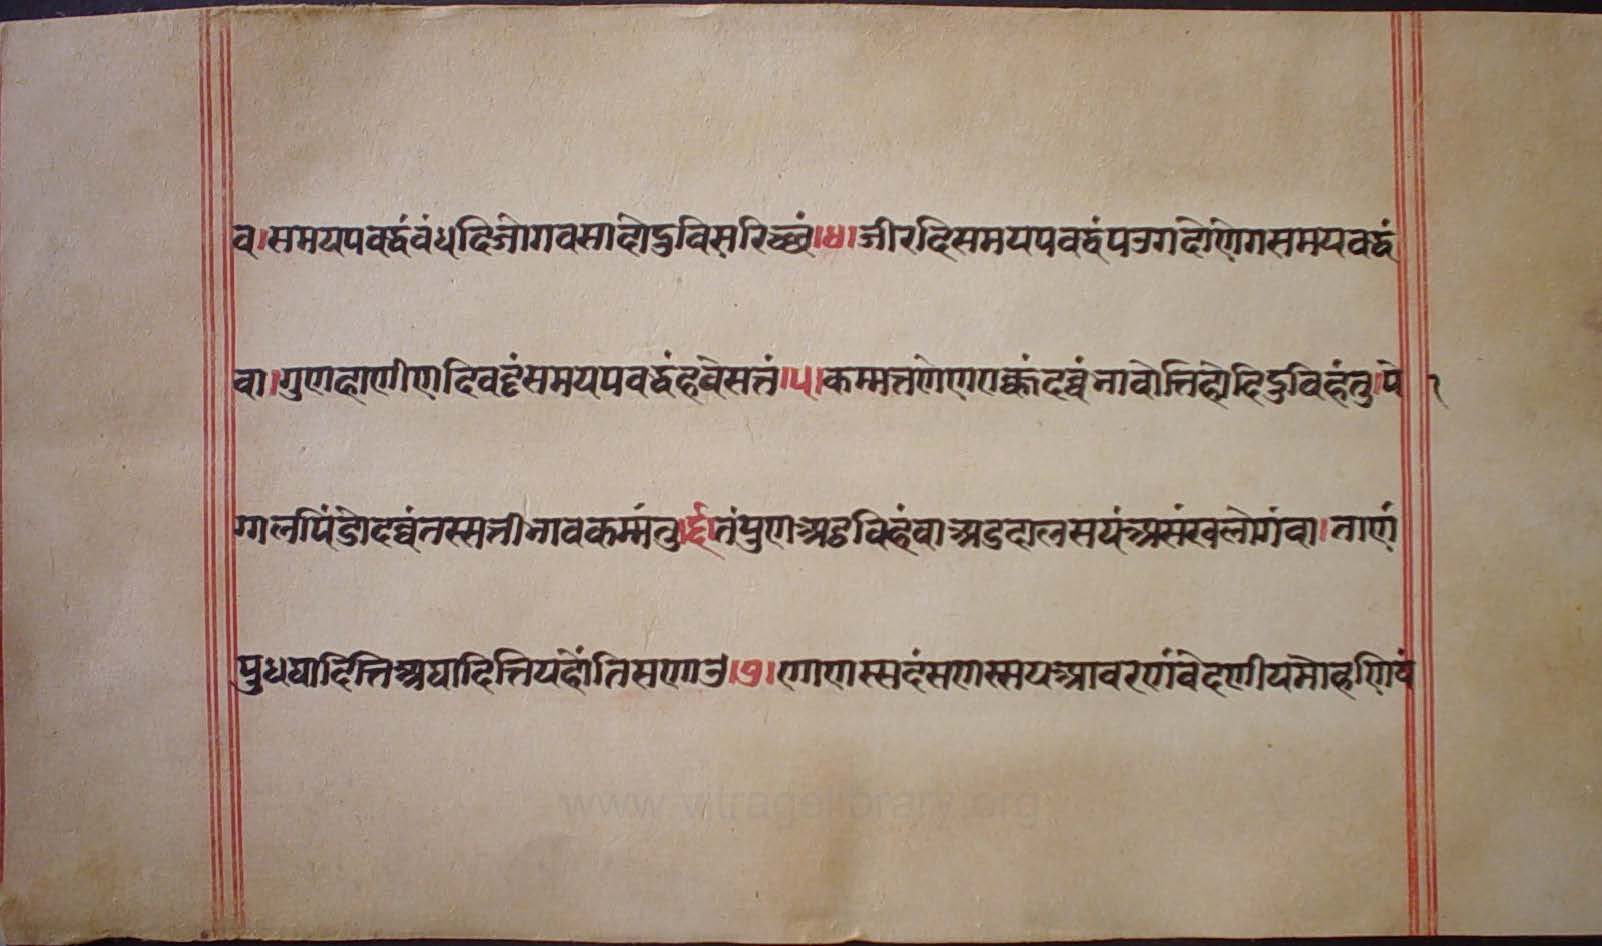 व।समयपबद्धंबंधदिजोगवसादोदुविसरिच्छं।४।जीरदिसमयपबद्धंपउगदोणेगसमयबद्धं
वा।गुणहाणीणदिवढ्ढंसमयपबद्धंहवेसत्तं।५।कम्मत्तणेणएक्कंदव्वंभावोत्तिहोदिदुविहंतु।पो १
ग्गलपिंडोदव्वंतस्सत्तीभावकम्मंतु।६।तंपुणअट्ठविहंवाअडदालसयंअसंखलोगंवा।ताणं
पुधघादित्तिअघादित्तियहोंतिसणाउ।७।णाणस्सदंसणस्सयआवरणंवेदणीयमोहणियं
www.vitragelibrary.org